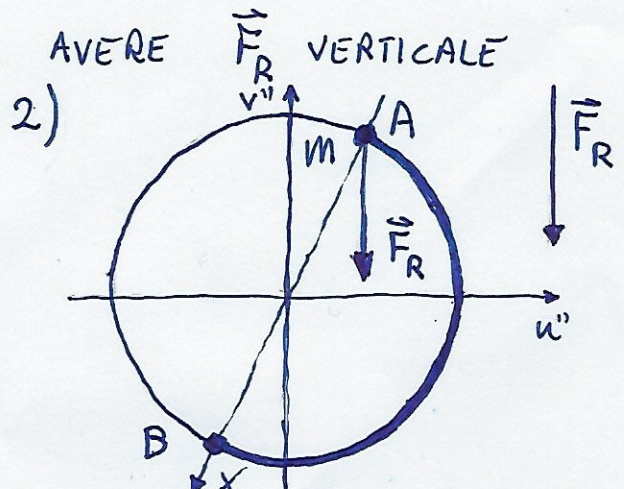 AVERE F_R VERTICALE
2)
v"
A
m
F_R
F_R
u"
B
x